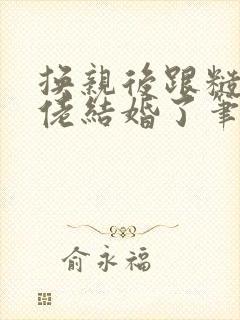 換親後跟糙
佬結婚了筆
俞永福